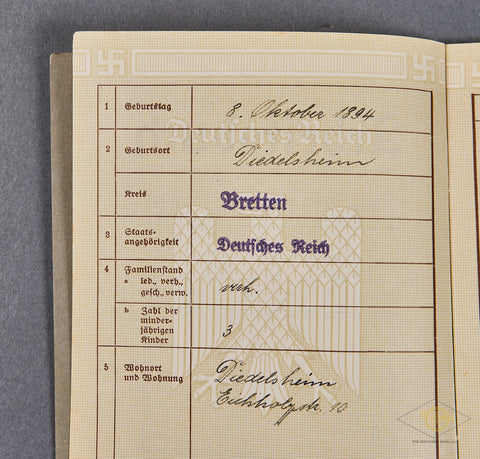 Deutsches Reich
1 Geburtstag 8. Oktober 1894
2 Geburtsort Diedelsheim
Kreis Bretten
3 Staats-
angehörigkeit Deutsches Reich
4 Familienstand
a led., verh.,
gesch., verw. verh.
b Zahl der
minder-
jährigen
Kinder 3
5 Wohnort
und Wohnung Diedelsheim
Eichholzstr. 10